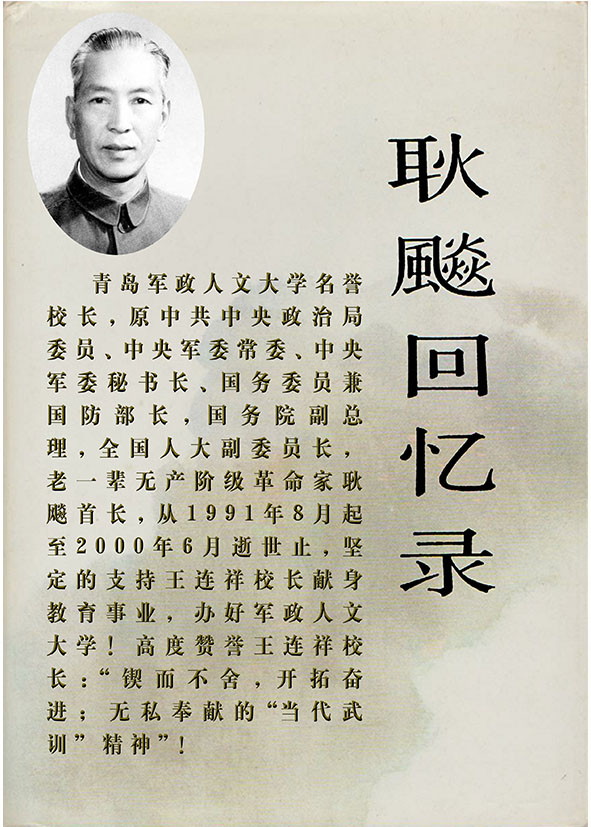 耿飚回忆录
青岛军政人文大学名誉
校长，原中共中央政治局
委员、中央军委常委、中央
军委秘书长、国务委员兼
国防部长，国务院副总
理，全国人大副委员长，
老一辈无产阶级革命家耿
飚首长，从1991年8月起
至2000年6月逝世止，坚
定的支持王连祥校长献身
教育事业，办好军政人文
大学！高度赞誉王连祥校
长：“锲而不舍，开拓奋
进；无私奉献的“当代武
训”精神”！